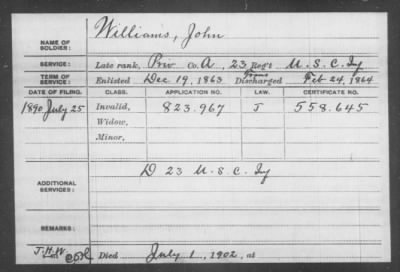 Williams, John
NAME OF SOLDIER:
SERVICE: Late rank, Priv Co. A, 23 Reg't U.S.C. Iy
TERM OF SERVICE: Enlisted Dec 19, 1863 Discharged Feb 24, 1864
DATE OF FILING. CLASS. APPLICATION NO. LAW. CERTIFICATE NO.
1890 July 25 Invalid, 823.967 J 558.645
Widow,
Minor,
ADDITIONAL SERVICES: D 23 U.S.C. Iy
REMARKS:
J.H.W. Died July 1, 1902, at